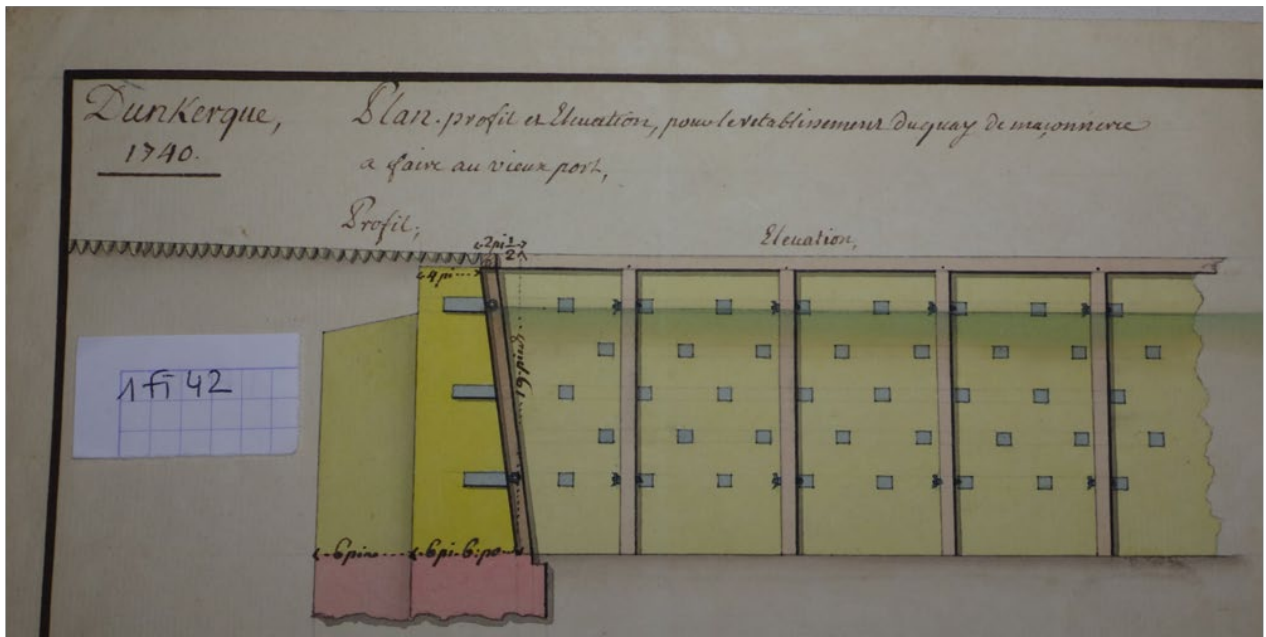 Dunkerque,
1740.
Plan. profil et Elevation, pour le retablissement du quay de maçonnerie
a faire au vieux port,
Profil;
Elevation,
2 pi 1/2
4 pi
1 fi 42
6 pi
6 pi. 6. po